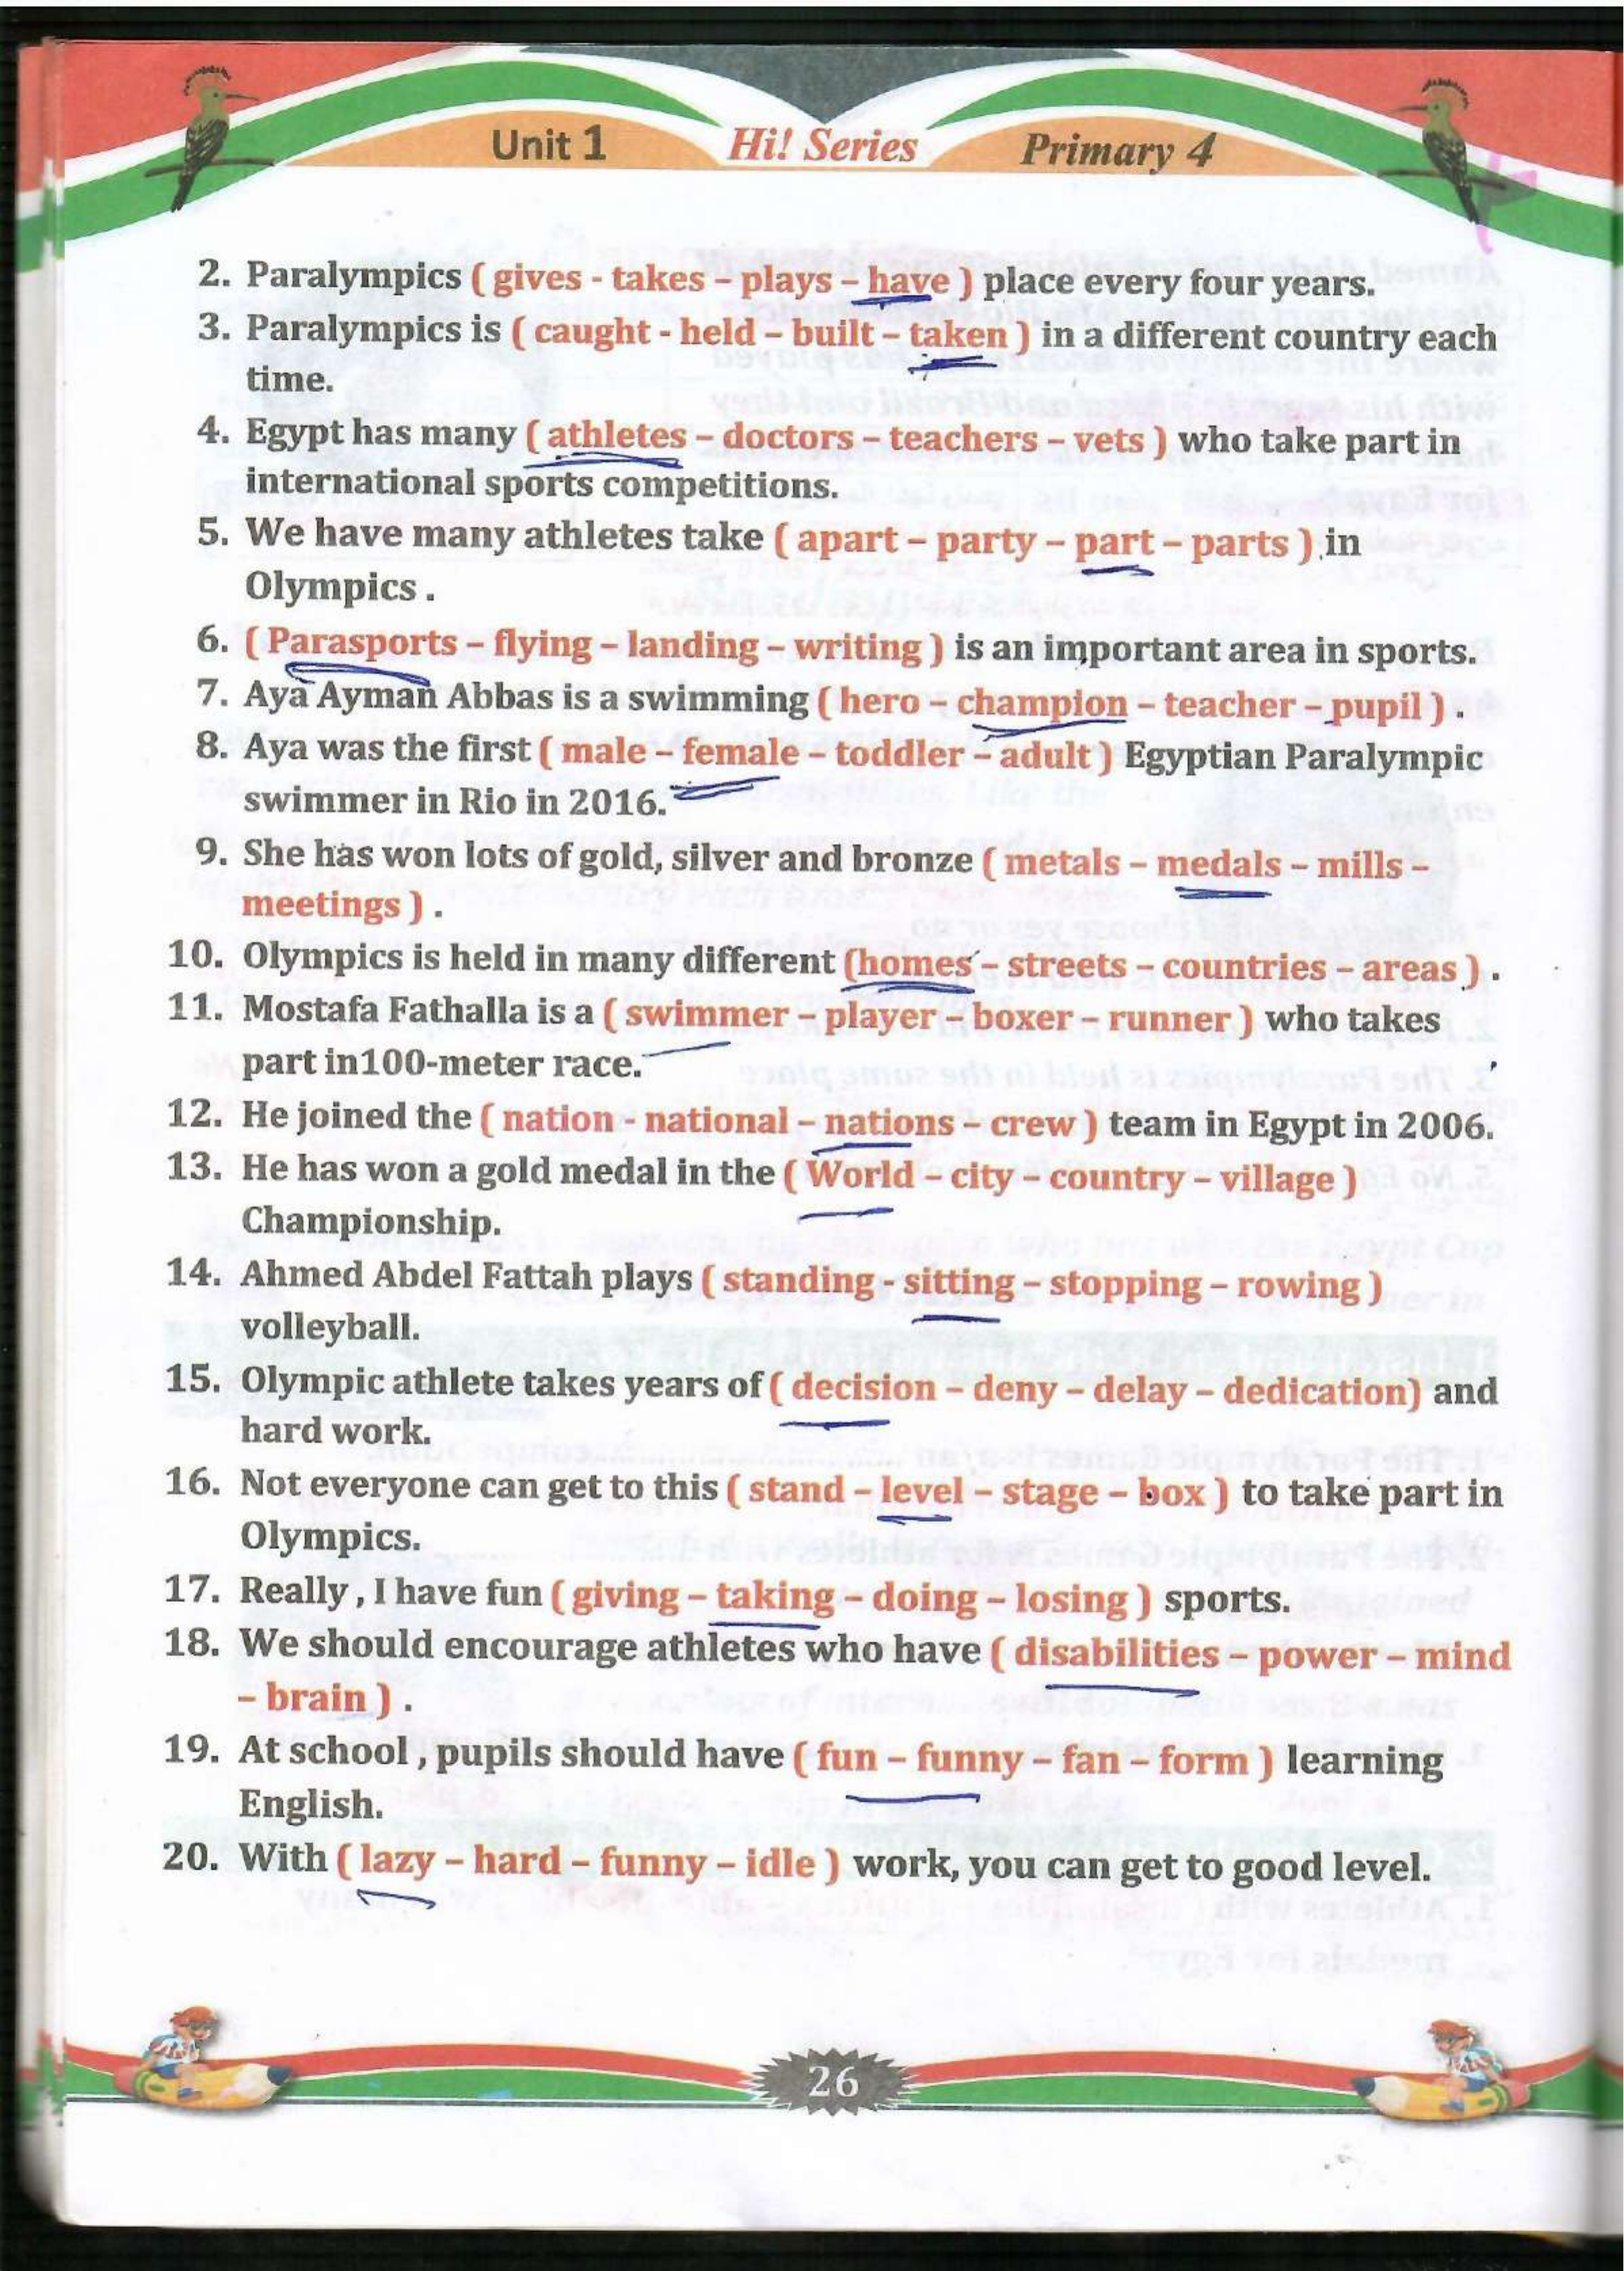 Unit 1 Hi! Series Primary 4
2. Paralympics ( gives - takes – plays – have ) place every four years.
3. Paralympics is ( caught - held – built – taken ) in a different country each
time.
4. Egypt has many ( athletes – doctors – teachers – vets ) who take part in
international sports competitions.
5. We have many athletes take ( apart – party – part – parts ) in
Olympics .
6. ( Parasports – flying – landing – writing ) is an important area in sports.
7. Aya Ayman Abbas is a swimming ( hero – champion – teacher – pupil ) .
8. Aya was the first ( male – female – toddler – adult ) Egyptian Paralympic
swimmer in Rio in 2016.
9. She has won lots of gold, silver and bronze ( metals – medals – mills –
meetings ) .
10. Olympics is held in many different (homes – streets – countries – areas ) .
11. Mostafa Fathalla is a ( swimmer – player – boxer – runner ) who takes
part in100-meter race.
12. He joined the ( nation - national – nations – crew ) team in Egypt in 2006.
13. He has won a gold medal in the ( World – city – country – village )
Championship.
14. Ahmed Abdel Fattah plays ( standing - sitting – stopping – rowing )
volleyball.
15. Olympic athlete takes years of ( decision – deny – delay – dedication) and
hard work.
16. Not everyone can get to this ( stand – level – stage – box ) to take part in
Olympics.
17. Really , I have fun ( giving – taking – doing – losing ) sports.
18. We should encourage athletes who have ( disabilities – power – mind
– brain ) .
19. At school , pupils should have ( fun – funny – fan – form ) learning
English.
20. With ( lazy – hard – funny – idle ) work, you can get to good level.
26